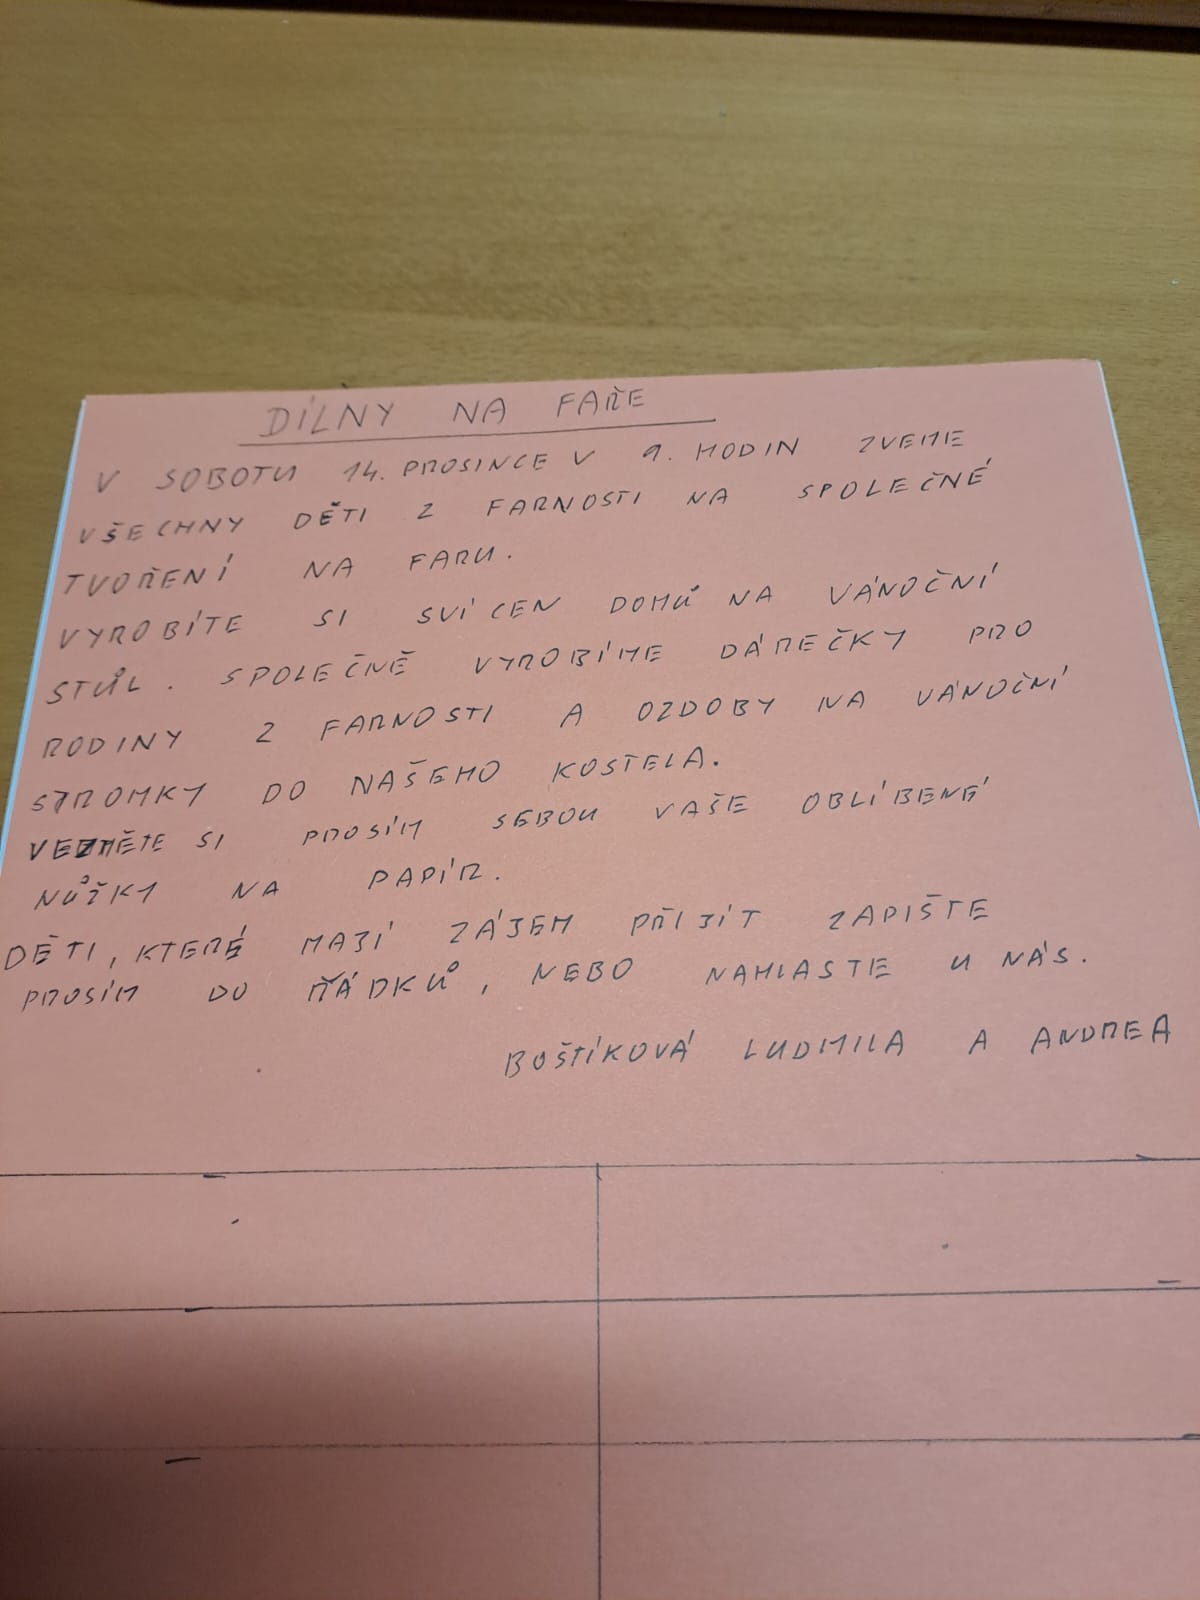 DÍLNY NA FAŘE
V SOBOTU 14. PROSINCE V 9. HODIN ZVEME
VŠECHNY DĚTI Z FARNOSTI NA SPOLEČNÉ
TVOŘENÍ NA FARU.
VYROBÍTE SI SVÍCEN DOMŮ NA VÁNOČNÍ
STŮL. SPOLEČNĚ VYROBÍME DÁREČKY PRO
RODINY Z FARNOSTI A OZDOBY NA VÁNOČNÍ
STROMKY DO NAŠEHO KOSTELA.
VEZMĚTE SI PROSÍM SEBOU VAŠE OBLÍBENÉ
NŮŽKY NA PAPÍR.
DĚTI, KTERÉ MAJÍ ZÁJEM PŘIJÍT ZAPIŠTE
PROSÍM DO ŘÁDKŮ, NEBO NAHLASTE U NÁS.
BOŠTÍKOVÁ LUDMILA A ANDREA